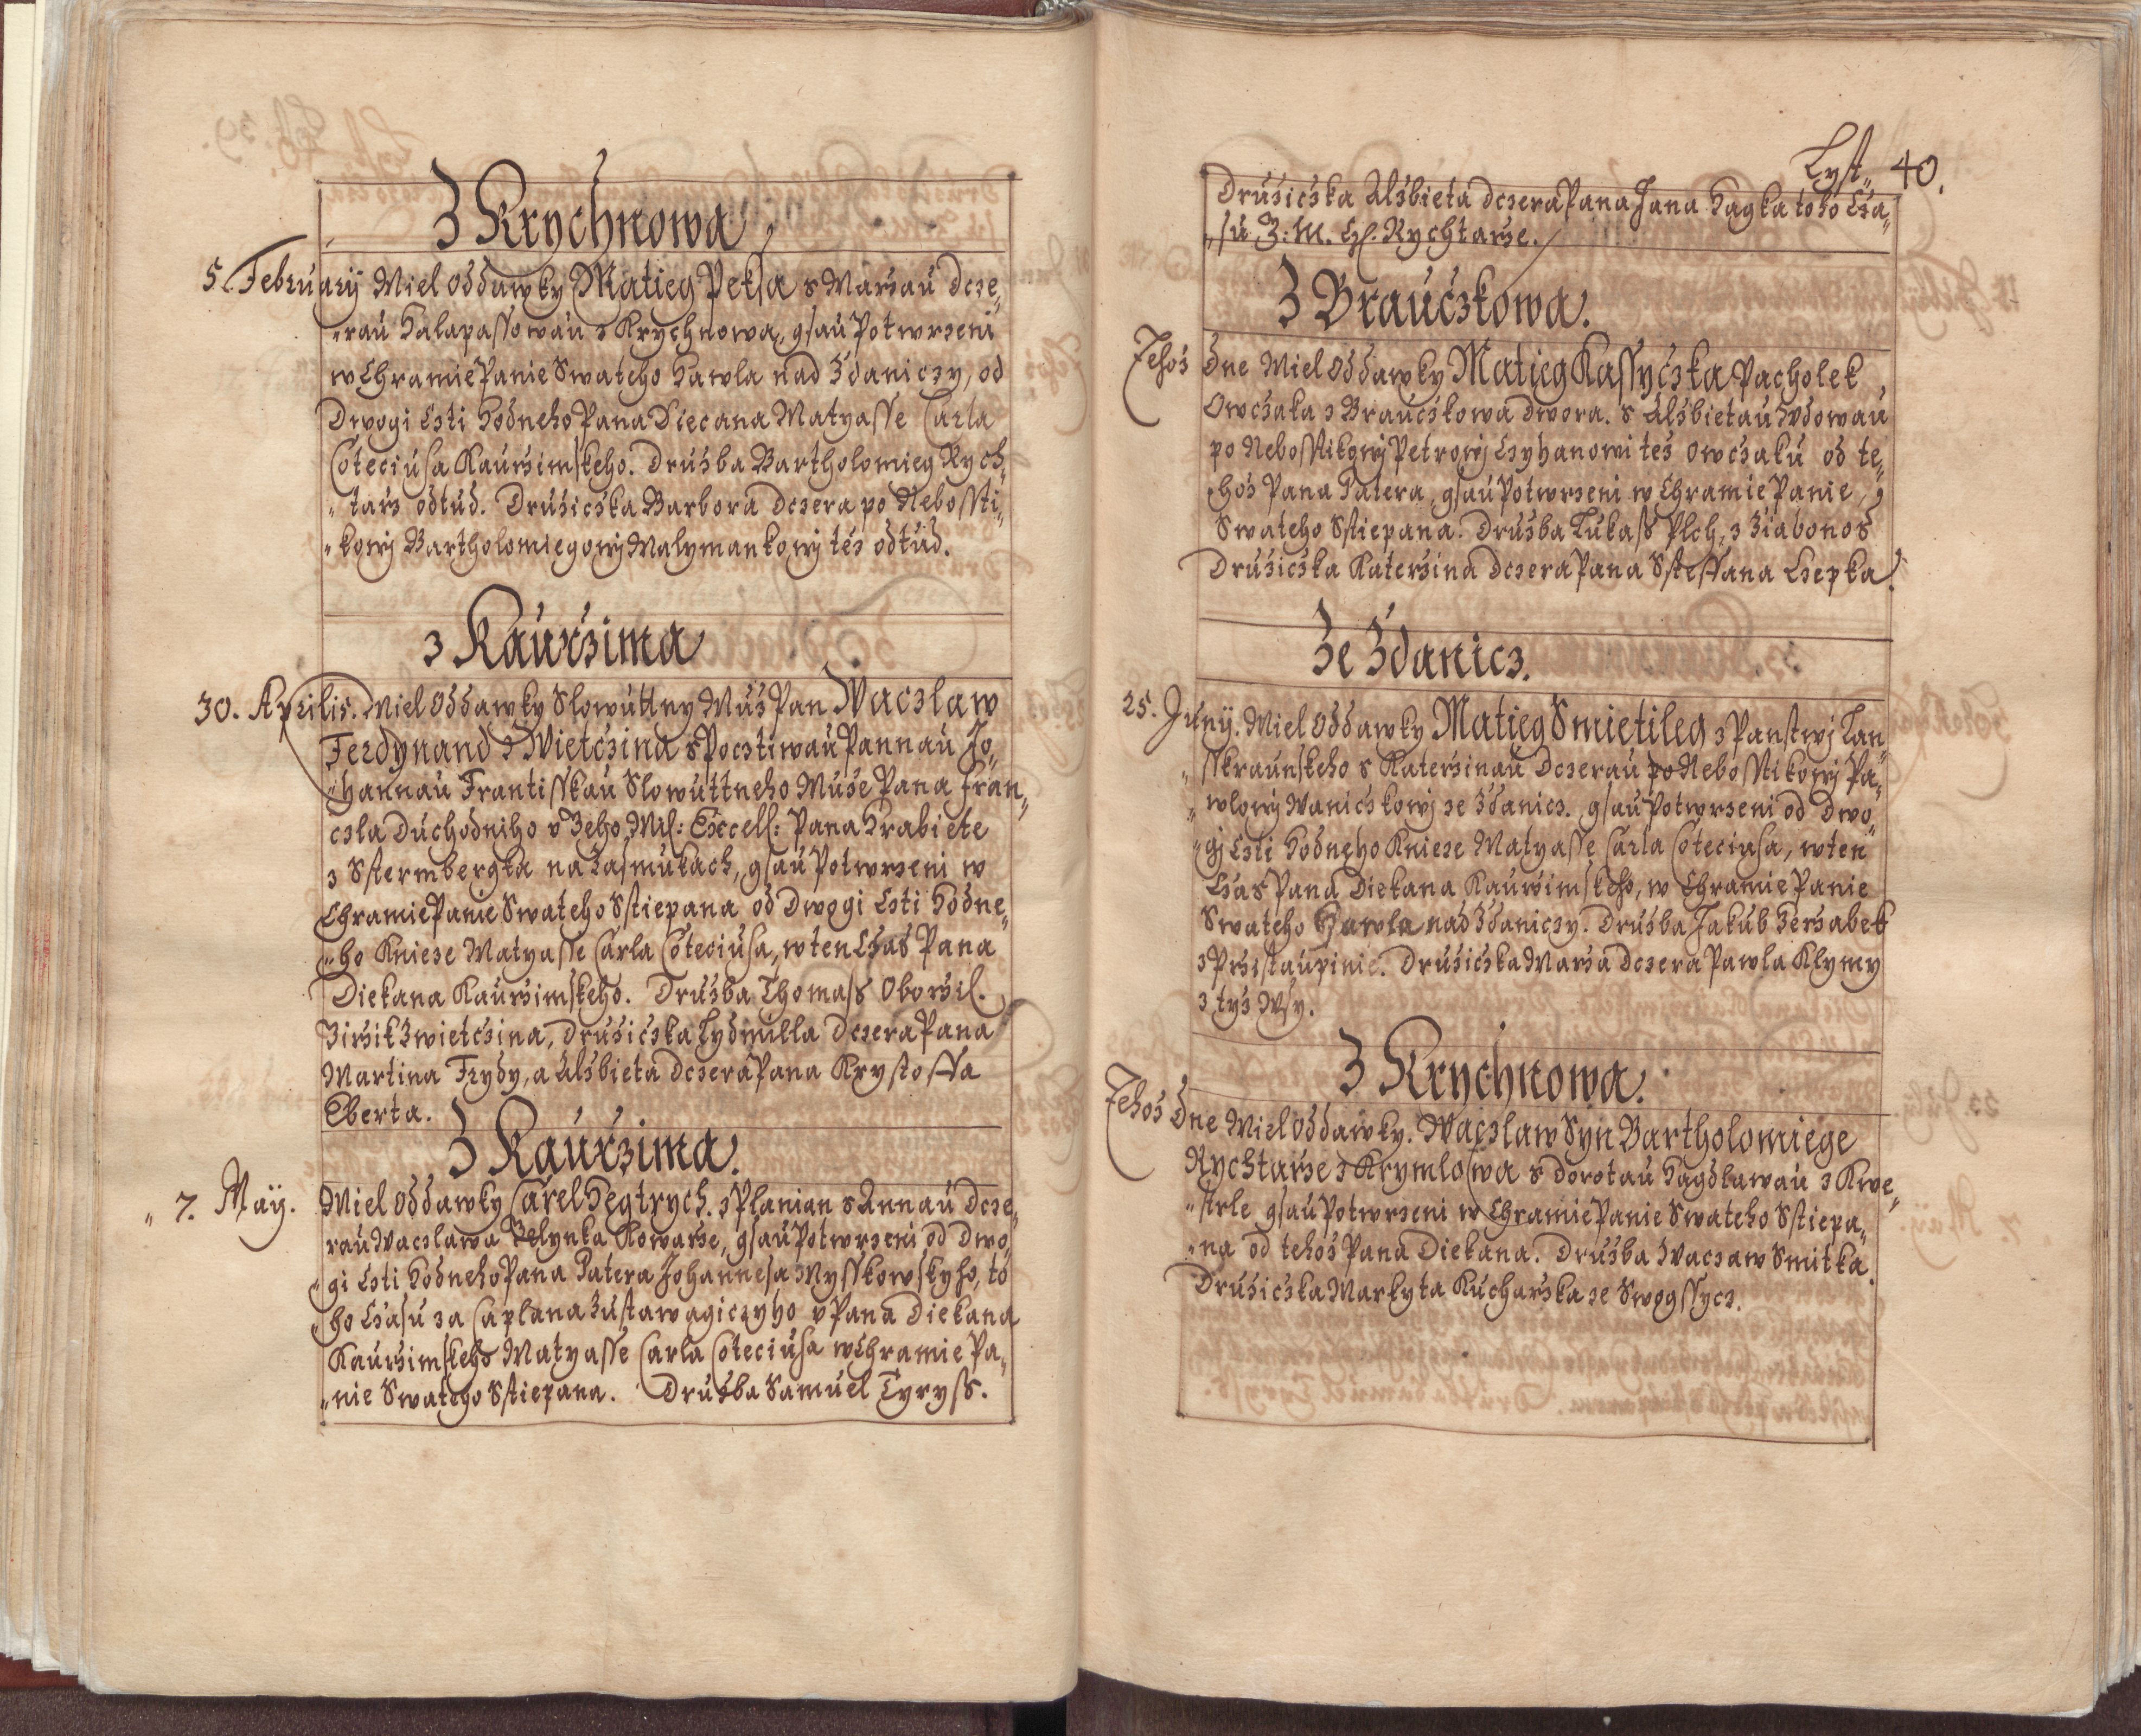 Z Krychnowa
5. Februarÿ Miel Oddawky Matieg Peksa s Marzau Dcze„
„rau Halapassowau z Krychnowa, gsau Potwrzeni
w Chramie Panie Swateho Hawla nad Zdaniczy, od
Dwogi Cti Hodneho Pana Diecana Matyasse Carla
Coteciusa Kaurzimskeho. Druzba Bartholomieg Rych„
„tarz odtud. Druziczka Barbora Dczera po Nebossti„
„kowj Bartholomiegowj Malymankowj též odtud.
z Kaurzima
30. Aprilis. Miel Oddawky Slowuttny Muz Pan Waczlaw
Ferdynand Zwietczina s Poctiwau Pannau Jo„
„hannau Frantisskau Slowuttneho Muze Pana Fran„
czla Duchodniho v Geho Mil: Excell: Pana Hrabiete
z Stermbergka na Zasmukach, gsau Potwrzeni w
Chramie Panie Swateho Sstiepana od Dwogi Cti Hodne„
„ho Knieze Matyasse Carla Coteciusa, w ten Czas Pana
Diekana Kaurzimskeho. Druzba Thomass Oborzil.
Girzik Zwietczina, Druziczka Lydmilla Dczera Pana
Martina Frydy, a Alzbieta Dczera Pana Krystoffa
Eberta.
Z Kaurzima.
„ 7. Maÿ. Miel Oddawky Carel Hegtrych. z Planian s Annau Dcze„
rau Waczlawa Belynka Kowarze, gsau Potwrzeni od Dwo„
„gi Cti Hodneho Pana Patera Johannesa Wysskowskyho, to
„ho Czasu za Caplana Zustawagiczyho v Pana Diekana
Kaurzimskeho Matyasse Carla Coteciusa w Chramie Pa„
„nie Swateho Sstiepana. Druzba Samuel Tyryss.
Lyst„ 40.
Druziczka Alzbieta Dczera Pana Jana Hagka toho Cza„
„su Z: M. Rychtarze.
Z Brauczkowa.
Tehoz dne Miel Oddawky Matieg Kassyczka Pacholek
Owczaka z Brauczkowa dwora. s Alzbietau Wdowau
po Nebosstikowj Petrowj Czyhanowi tez Owczaku od te„
hoz Pana Patera, gsau Potwrzeni w Chramie Panie,
Swateho Sstiepana. Druzba Lukass Plch, z Ziabonos
Druziczka Katerzina Dczera PanaSsteffana Czepka.
Ze Zdanicz.
25. Junÿ. Miel Oddawky Matieg Smietileg z Panstwj Lan„
„sskraunskeho s Katerzinau Dczerau po Nebosstikowj Pa„
„wlowj Waniczkowj ze Zdanicz. gsau Potwrzeni od Dwo„
„gj Cti Hodneho Knieze Matyasse Carla Coteciusa, w ten
Czas Pana Diekana Kaurzimskeho, w Chramie Panie
Swateho Hawla nad Zdaniczy. Druzba Jakub Gerzabek
z Przistaupinie. Druziczka Marza Dczera Pawla Klymy
z tyz Wsy.
Z Krychnowa.
Tehoz Dne Miel Oddawky. Waczlaw Syn Bartholomiege
Rychtarze z Krymlowa s Dorotau Hagdlawau z Kwe„
„trle gsau Potwrzeni w Chramie Panie Swateho Sstiepa„
„na od tehoz Pana Diekana. Druzba Waczaw Smitka.
Druziczka Markyta Kucharzka ze Swogssycz.